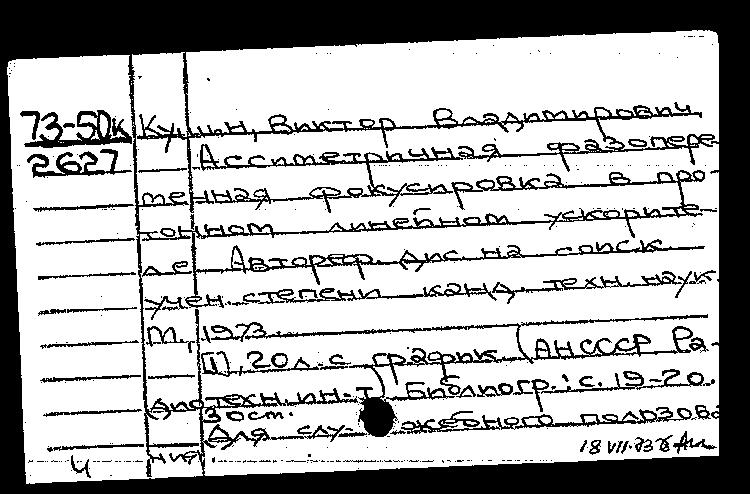 73-50к Кушин, Виктор Владимирович,
2627 Ассиметричная фазопере-
менная фокусировка в про-
тонном линейном ускорите-
ле Автореф. дис. на соиск.
учен. степени канд. техн. наук.
М., 1973.
[1], 20 л. с график. (АНСССР Ра-
диотехн. ин-т) Библиогр.: с. 19-20.
30 ост.
Для слу- жебного пользова-
ния.
18 VII. 73
4